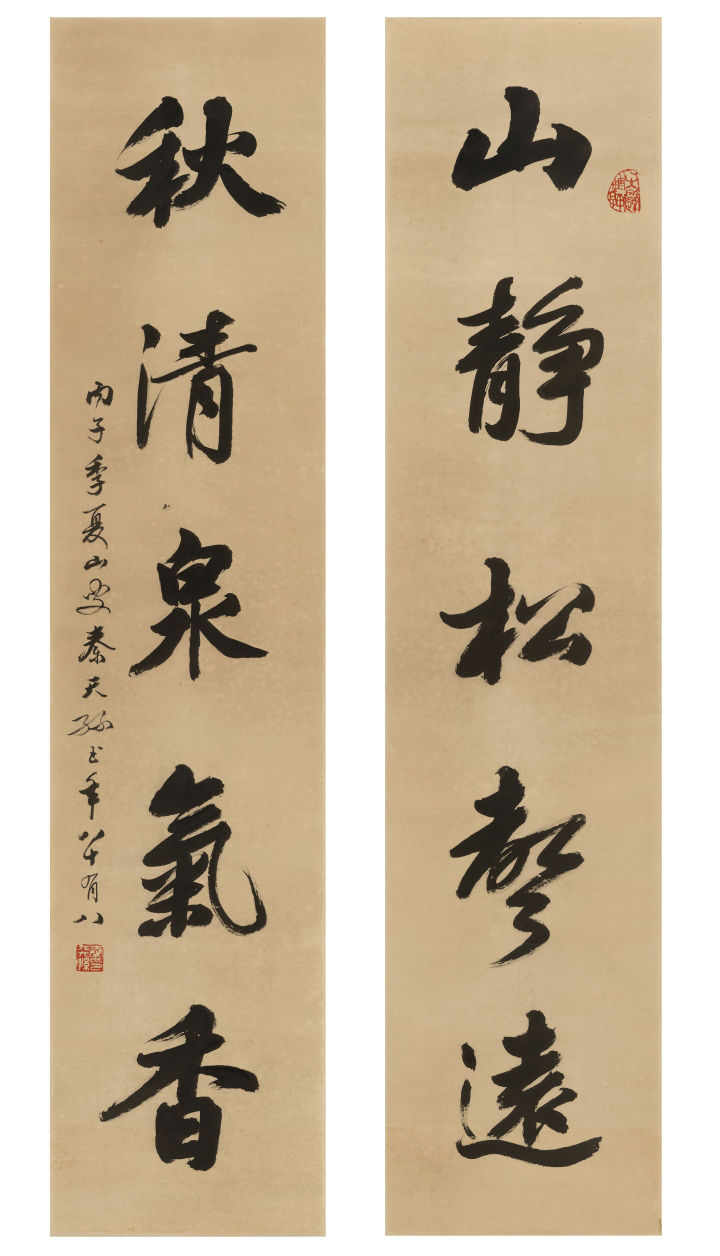 山靜松聲遠
秋清泉氣香
丙子季夏山叟秦天孫書年八十有八